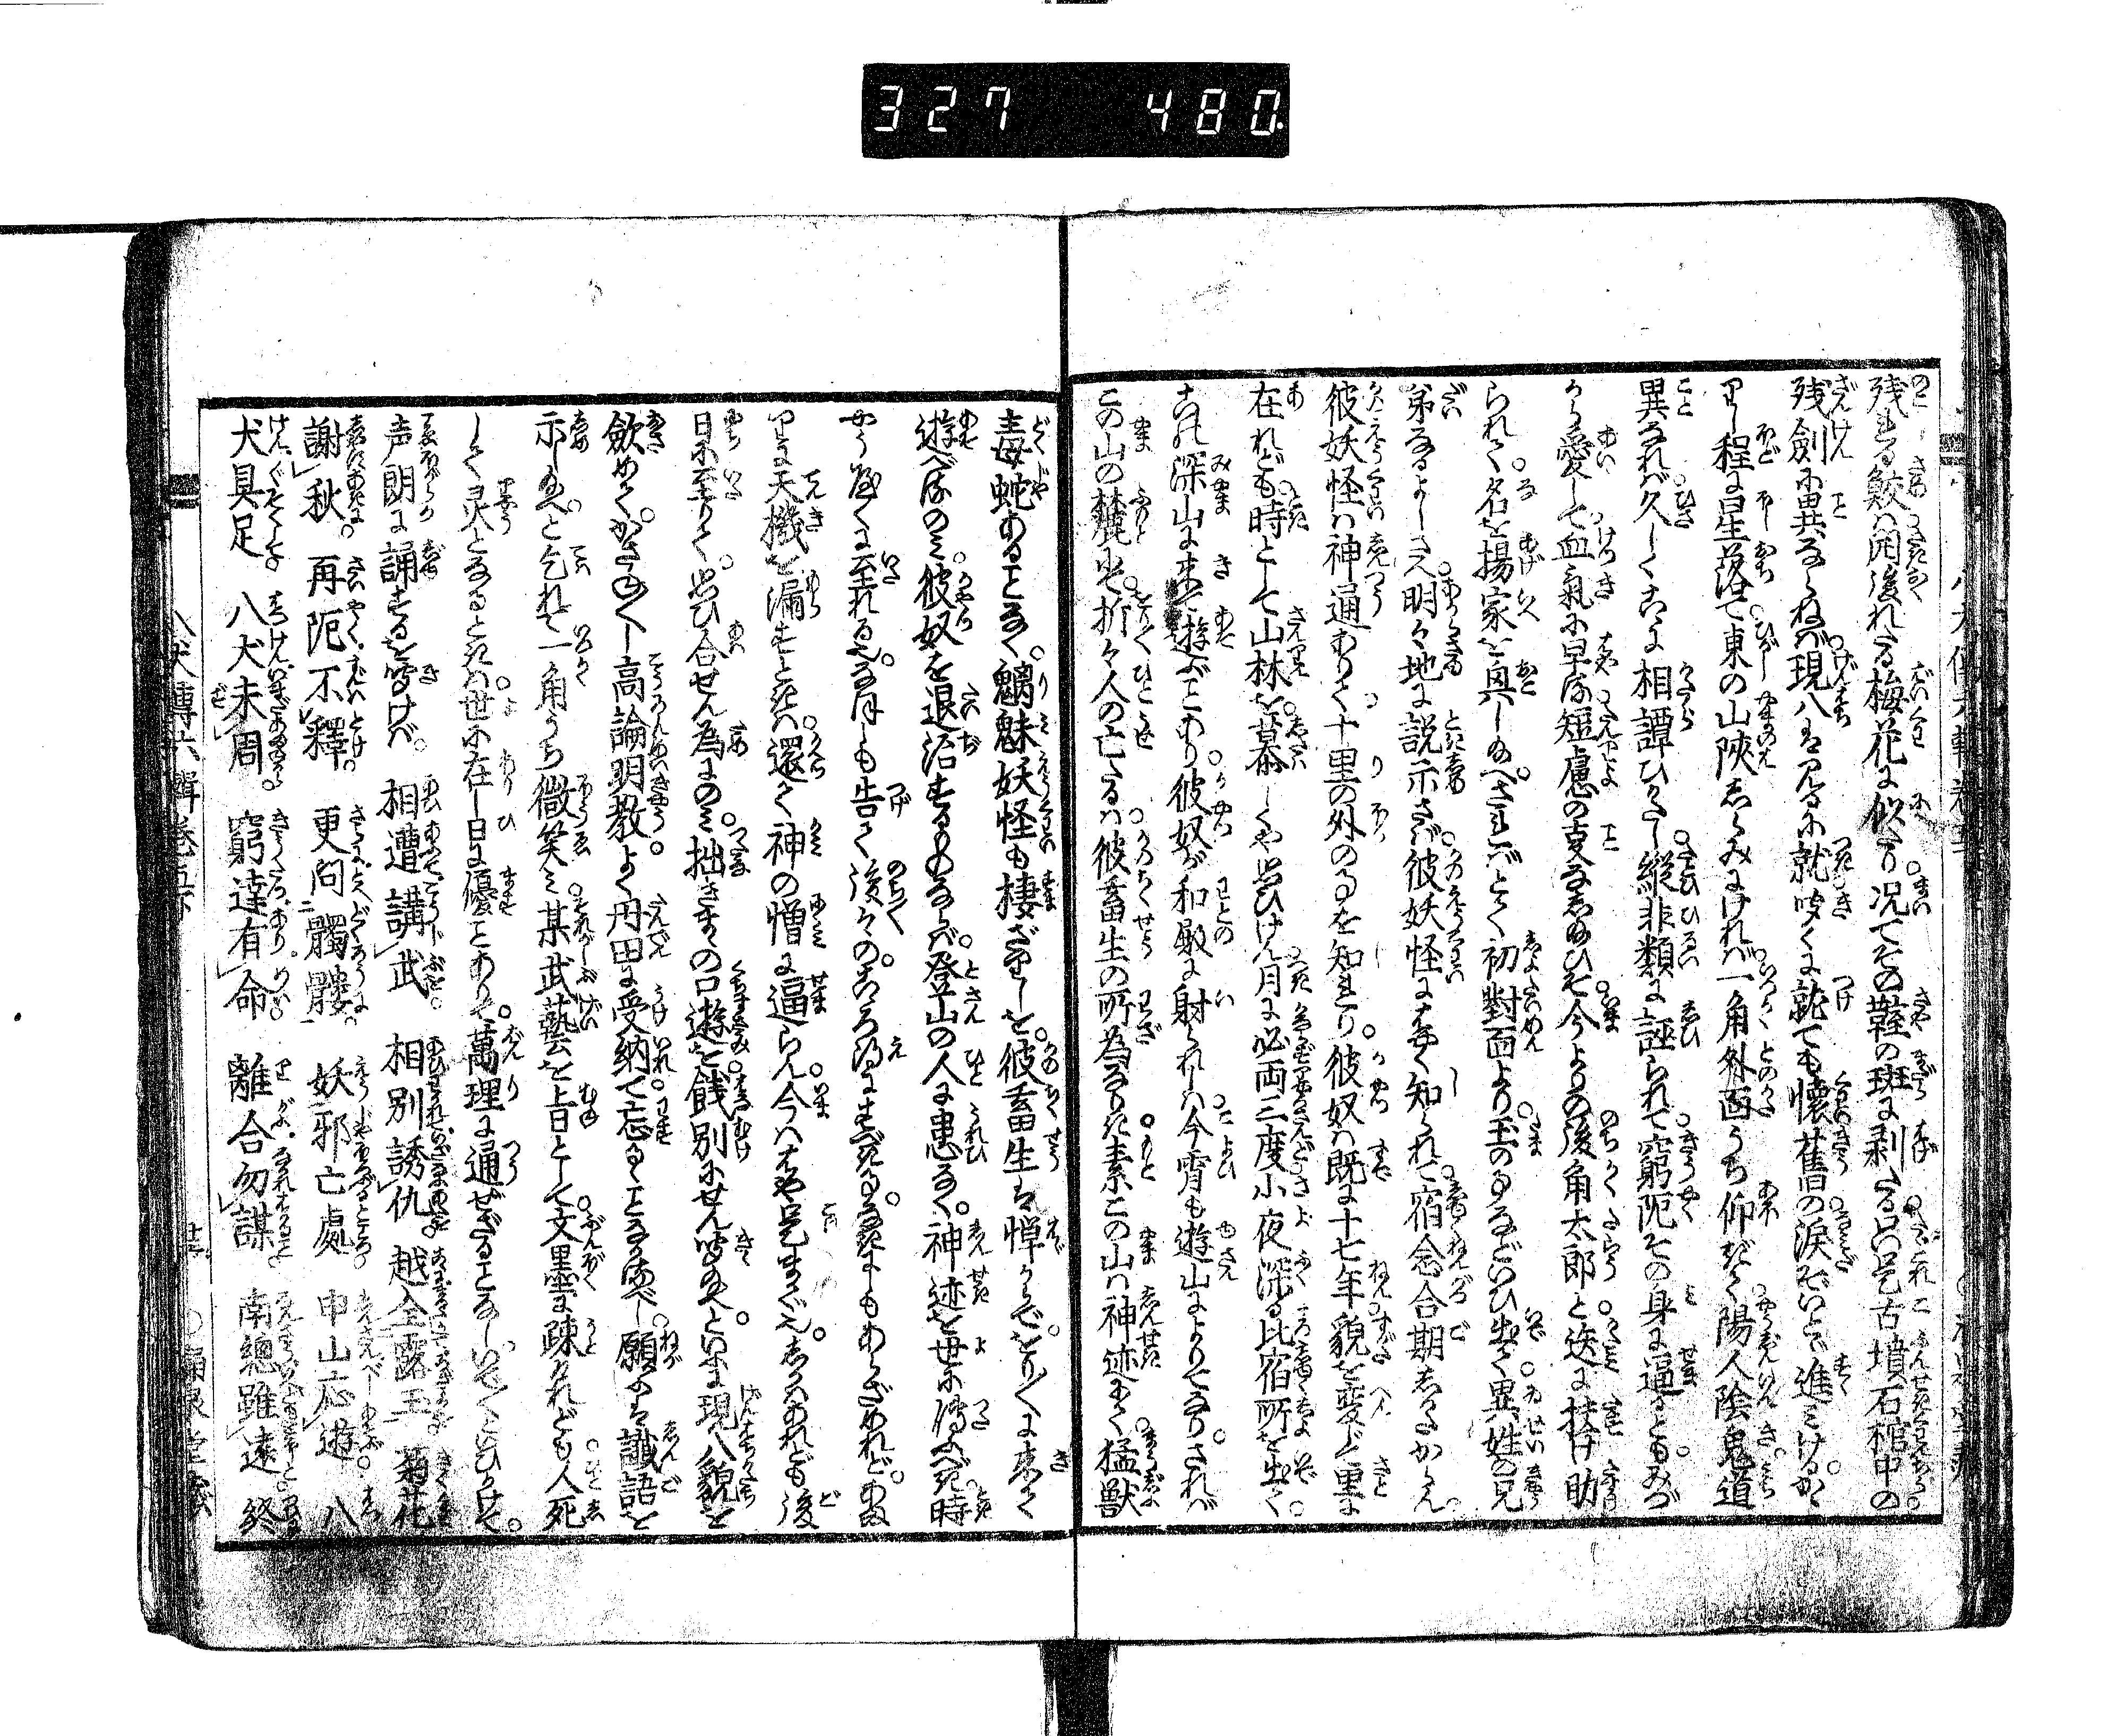 327 480
残れる鮫は開後れたる梅花に似たり。况てその鞘の斑に剥たるは只是古墳石棺中の
残劍に異ならねば。現八はこれを見るに就。吻くに就ても懐舊の涙ぞいとゞ進みける。かゝ
りし程に星落て東の山陝しらみにければ。一角外面うち仰ぎて。陽人陰鬼道
異なれば。久しくこゝに相譚ひがたし。縦非類に誣られて。窮阨その身に逼るとも。みづ
から愛して血氣に早る。短慮の㕝なしたまひそ。今よりの後角太郎と。迭に扶け助
られて。名を揚家を興し給へ。さればとて。初對面より玉の㕝などいひ出て。異姓の兄
弟なるよしさへ明々地に説示さば。彼妖怪に早く知られて。宿念合期しがたからん。
彼妖怪は神通ありて。十里の外の事を知れり。彼奴は既に十七年。貌を変じ里に
在れども。時として山林を。慕しくや思ひけん。月に必両三度。小夜深る比宿所を出て。
この深山に来て遊ぶことあり。彼奴が和殿に射られしは。今宵も遊山によりてなり。されば
この山の麓にて。折々人の亡るは。彼畜生の所為なりき。素この山は神迹にて。猛獣
毒蛇あることなく。魑魅妖怪も棲ざりしを。彼畜生は憚らで。をり〳〵に来て
遊べるのみ。彼奴を退治するものならば。登山の人に患なく。神迹を世に傳ふべき時
やうやくに至れるなり。
りに天機を漏すときは。還て神の憎に逼らん。今ははや是まで也。しかはあれども後
日に至りて。思ひ合せん為にのみ。拙きまの口遊を。餞別にせん。吻給へといふに現八貌を
斂めて。かさね〴〵し高論明教。よく丹田に受納て。忘るゝことなかるべし。願ふは讖語を
示し給へ。と乞れて一角うち微笑み。某武藝を旨として。文墨に疎けれども。人死
して灵となるときは。世に在し日に優ことあり。萬理に通ぜざることなし。いで〳〵といひかけて。
声朗に誦するを吻けば。相遭講武　相別誘仇　越全露玉　菊花
謝秋。　再阨不釋。　更問髑髏。　妖邪亡處　申山応遊　八
犬具足。　八犬未周。　窮達有命　離合勿謀　南總雖遠　終
八犬傳六輯巻五下